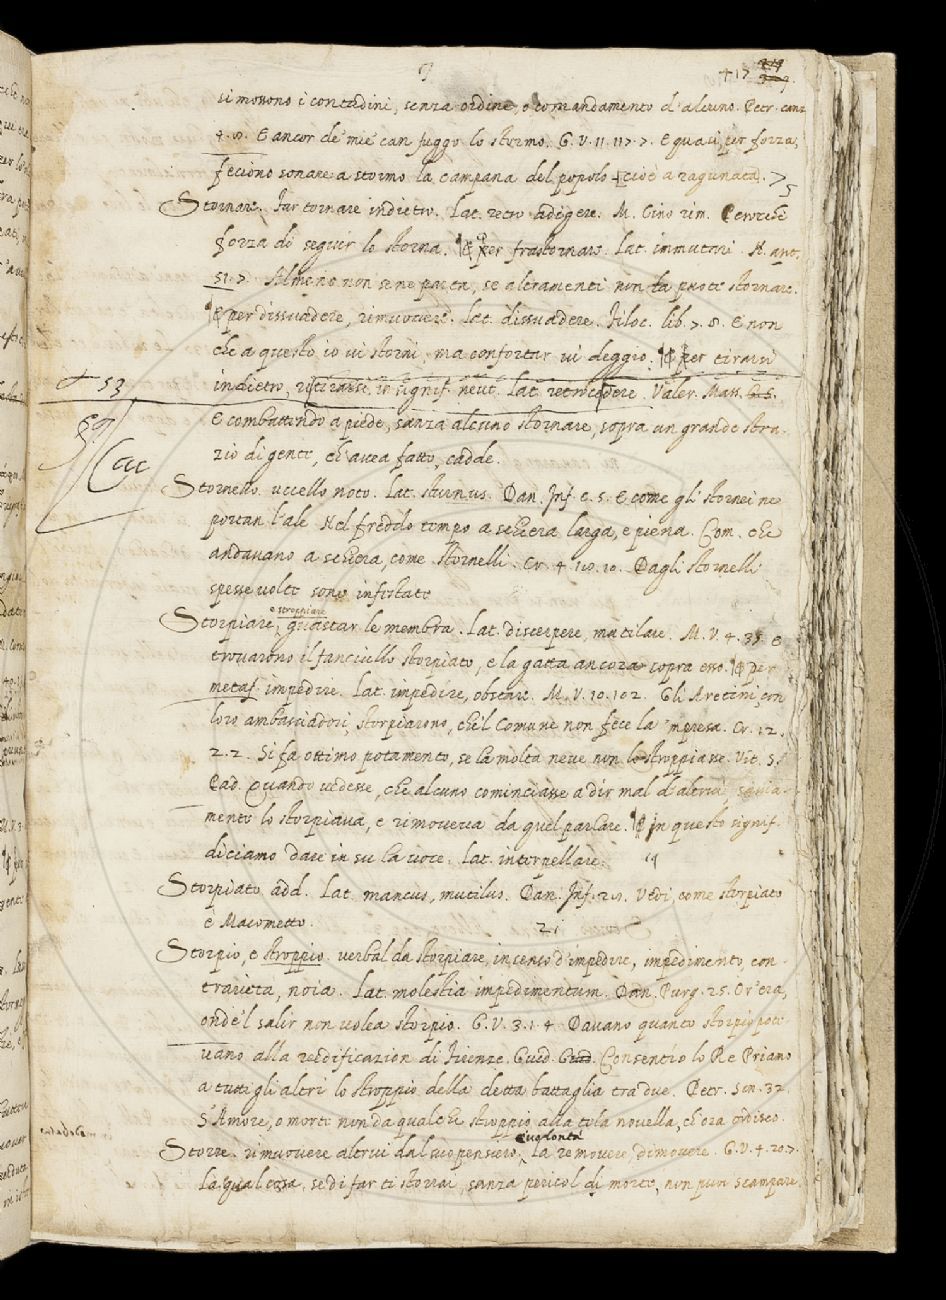 417 219
si mossono i contadini, senza ordine, o comandamento d'alcuno. Petr. canz
4. 8. E ancor de miei can fuggo lo stormo. G. V. 11. 117. 7. E quasi per forza,
feciono sonare a stormo la campana del popolo cioè a ragunata. 7
Stornare. Far tornare indietro. Lat. retro adigere. M. Cino rim.
forza di seguir lo storna. E per frastornare. Lat. immutari. N. ant.
51. 7. Almeno non se ne parta, se altramenti non la puote stornare.
E per dissuadere, rimuovere. Lat. dissuadere. Filoc. lib. 7. 8. E non
che a questo io vi storni, ma confortar vi deggio. E per tirarsi
indietro, ritirarsi, in signif. neut. Lat. retrocedere. Valer. Mass. G. S.
53
E combattendo a piede, sanza alcuno stornare, sopra un grande stra-
zio di gente, ch'avea fatto, cadde.
Stornello. uccello noto. Lat. sturnus. Dan. Inf. c. 5. E come gli stornei ne
portan l'ale Nel freddo tempo a schiera larga, e piena. Com. che
andavano a schiera, come stornelli. Cr. 4. 18. 10. Dagli stornelli
spesse volte sono infestate
e stroppiare
Storpiare, guastar le membra. Lat. discerpere, mutilare. M. V. 4. 35. E
trovarono il fanciullo storpiato, e la gatta ancora sopra esso. E per
metaf. impedire. Lat. impedire, obstare. M. V. 10. 102. Gli Aretini, con
loro ambasciadori, storpiarono, che 'l Comune non fece la 'mpresa. Cr. 12.
2. 2. Si fa ottimo potamento, se la molta neve non lo stroppiasse. Vit. S.
Pad. Quando vedesse, che alcuno cominciasse a dir mal d'altrui, savia-
mente lo storpiava, e rimoveva da quel parlare. E in questo signif.
diciamo dare in su la voce. Lat. interpellare.
Storpiato add. Lat. mancus, mutilus. Dan. Inf. 28. Vedi, come storpiato
è Macometto.
Storpio, e stroppio. verbal da storpiare, in senso d'impedire, impedimento, con-
trarietà, noia. Lat. molestia impedimentum. Dan. Purg. 25. Or' era,
onde 'l salir non volea storpio. G. V. 3. 1. 4. Davano quanto storpio pote-
vano alla redificazion di Firenze. Guid. Guid. Consentio lo Re Priamo
a tutti gli altri lo stroppio della detta battaglia tra due. Petr. Son. 32.
S'Amore, o morte non da qualche stroppio alla tela novella, ch'ora ordisco.
e volontà
Storre. rimuovere altrui dal suo pensiero, La. removere, dimovere. G. V. 4. 20. 7.
La qual cosa, se di far ti storrai, sanza pericol di morte, non puoi scampare.